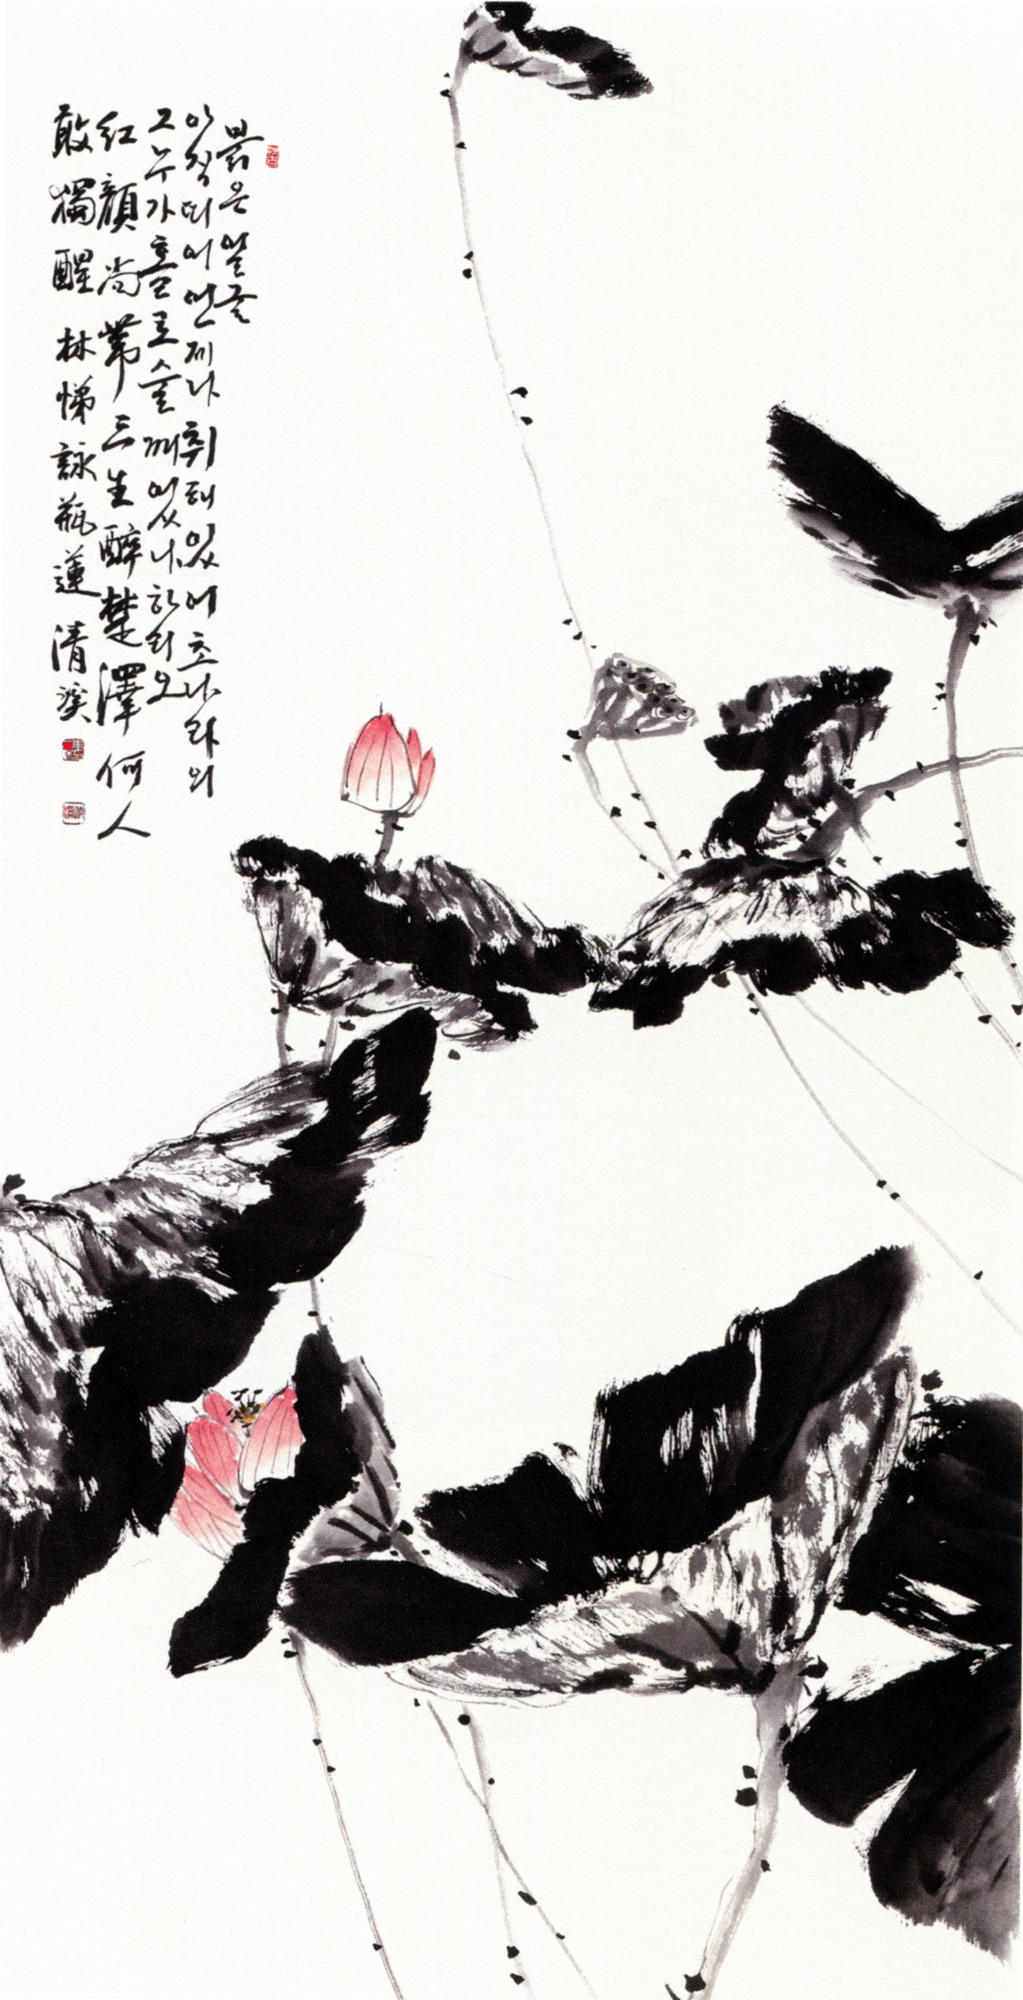 붉은 얼굴
아직 띠어 언제나 취해 있어 초나라의
그 누가 홀로 술 깨 있나 하리오
紅顔尚帶三生醉楚澤何人
敢獨醒 林悌詠甁蓮 淸溪